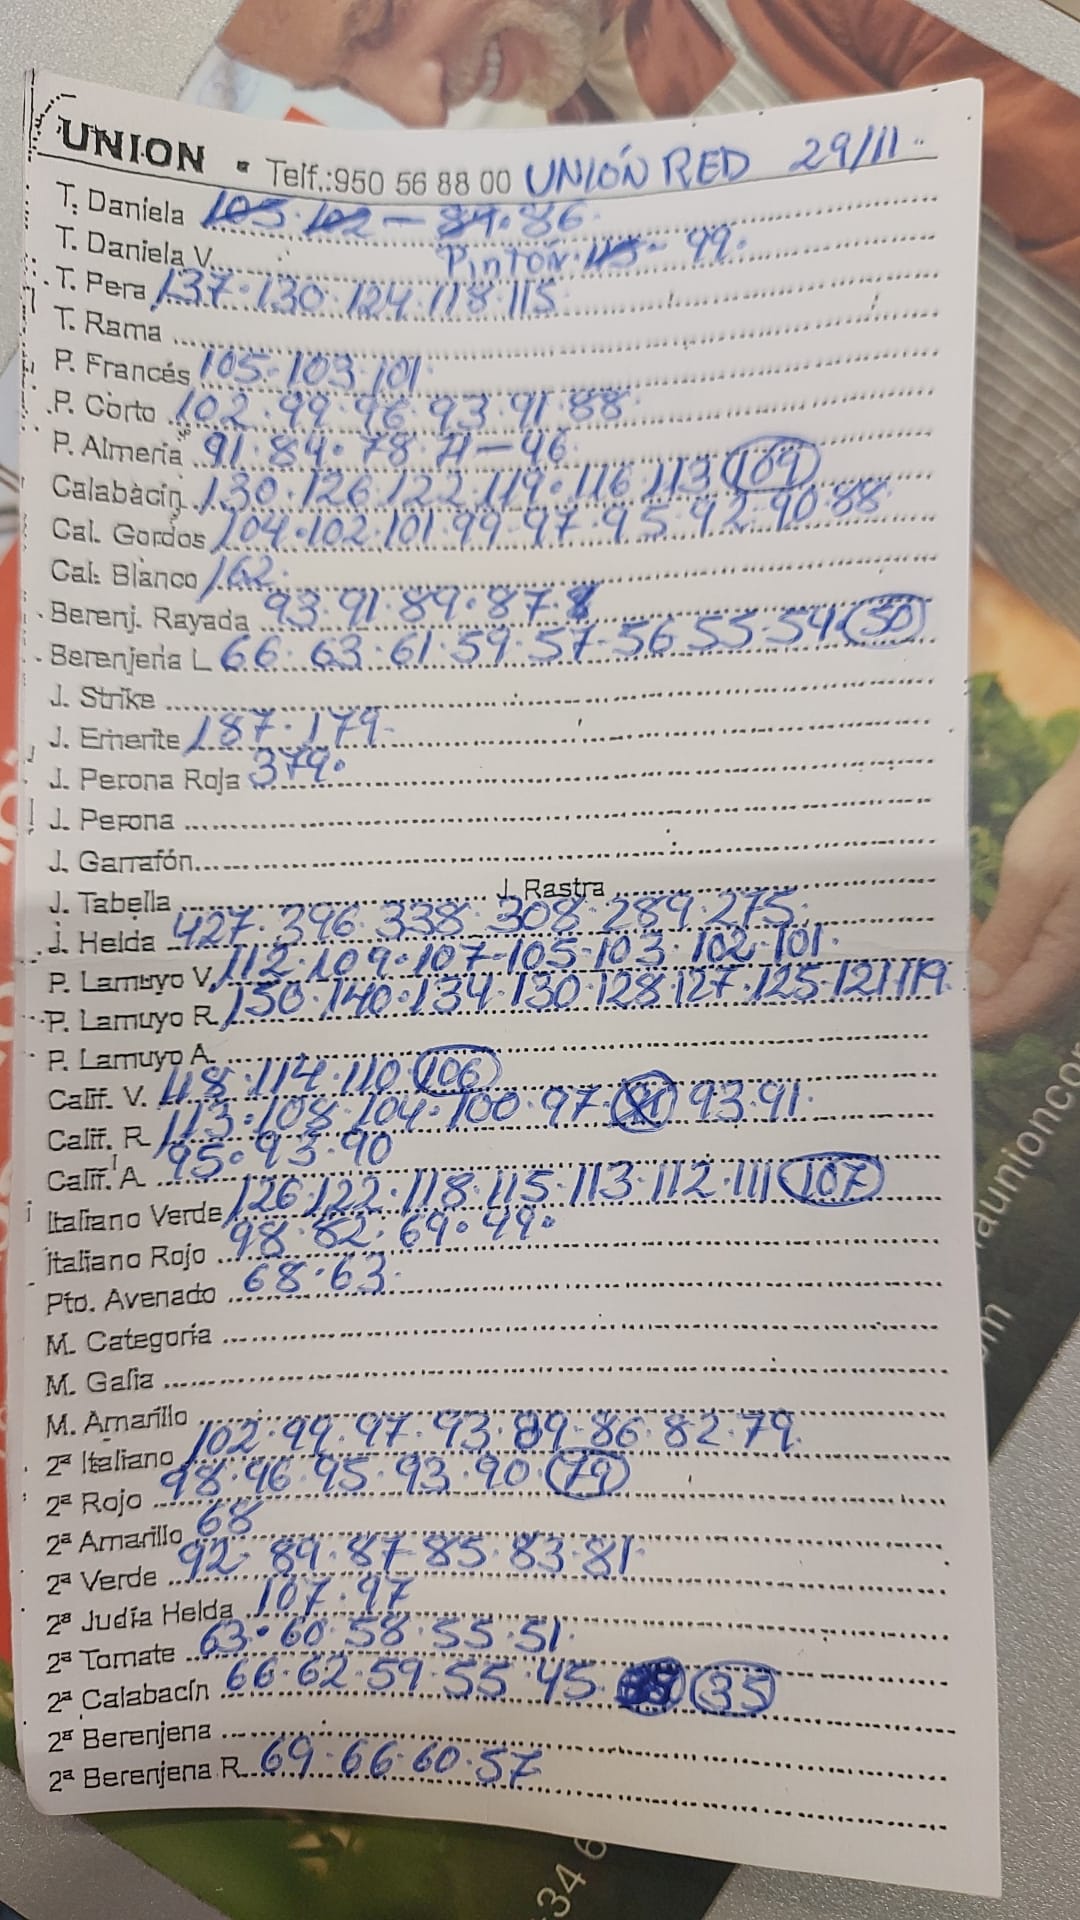 UNION - Telf.:950 56 88 00 UNIÓN RED 29/11
T. Daniela 105 · 102 - 89 · 86
T. Daniela V. Pintón · 115 - 99 ·
T. Pera 137 · 130 · 124 · 118 · 115
T. Rama
P. Francés 105 · 103 · 101
P. Corto 102 · 99 · 96 · 93 · 91 · 88
P. Almeria 91 · 84 · 78 · 71 - 46
Calabacin 130 · 126 · 122 · 119 · 116 · 113 109
Cal. Gordos 104 · 102 · 101 · 99 · 97 · 95 · 92 · 90 · 88
Cal. Blanco 162 ·
Berenj. Rayada 93 · 91 · 89 · 87 ·
Berenjena L 66 · 63 · 61 · 59 · 57 · 56 · 55 · 54 50
J. Strike
J. Emerite 187 · 179 ·
J. Perona Roja 379 ·
J. Perona
J. Garrafón
J. Tabella J. Rastra
J. Helda 427 · 396 · 338 · 308 · 289 · 275 ·
P. Lamuyo V. 112 · 109 · 107 - 105 - 103 · 102 · 101 ·
P. Lamuyo R. 150 · 140 · 134 · 130 · 128 · 127 · 125 · 121 · 119 ·
P. Lamuyo A.
Calif. V. 118 · 114 · 110 106
Calif. R. 113 · 108 · 104 · 100 · 97 · 93 · 91 ·
Calif. A. 95 · 93 · 90
Italiano Verde 126 · 122 · 118 · 115 · 113 · 112 · 111 107
Italiano Rojo 98 · 82 · 69 · 49 ·
Pto. Avenado 68 · 63 ·
M. Categoría
M. Galia
M. Amarillo
2ª Italiano 102 · 99 · 97 · 93 · 89 · 86 · 82 · 79 ·
2ª Rojo 98 · 96 · 95 · 93 · 90 · 79
2ª Amarillo 68
2ª Verde 92 · 89 · 87 · 85 · 83 · 81 ·
2ª Judía Helda 107 · 97
2ª Tomate 63 · 60 · 58 · 55 · 51 ·
2ª Calabacín 66 · 62 · 59 · 55 · 45 35
2ª Berenjena
2ª Berenjena R. 69 · 66 · 60 · 57
aunioncor
om
34 6